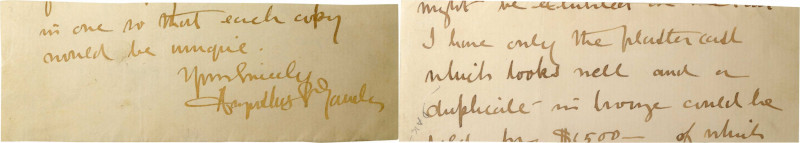 in one so that each copy
would be unique.
Yours sincerely
might be
I have only the plaster cast
which looks well and a
duplicate in bronze could be
for $1500 — of which